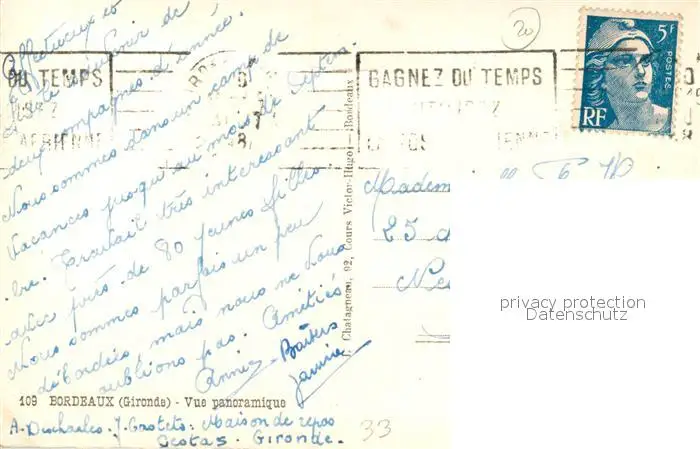 Affectueux et
petit souvenir de
deux compagnes d'année.
Nous sommes dans un camp de
vacances jusqu'au mois de septem-
bre. Travail très intéressant
avec près de 80 jeunes filles.
Nous sommes parfois un peu
débordées mais nous ne vous
oublions pas. Amitiés
Annie - Baisers
Janine
109 BORDEAUX (Gironde) - Vue panoramique
A. Descharles. J. Gastets: Maison de repos
Cestas. Gironde.
33
Chatagneau, 92, Cours Victor-Hugo - Bordeaux
20
DU TEMPS
GAGNEZ DU TEMPS
5F
POSTES
RF
Madem
25
Ne
privacy protection
Datenschutz